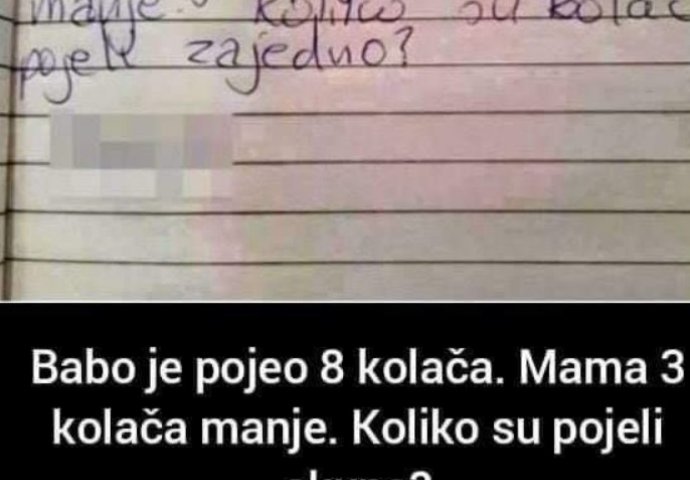 manje. Koliko su kolač
pojeli zajedno?
Babo je pojeo 8 kolača. Mama 3
kolača manje. Koliko su pojeli